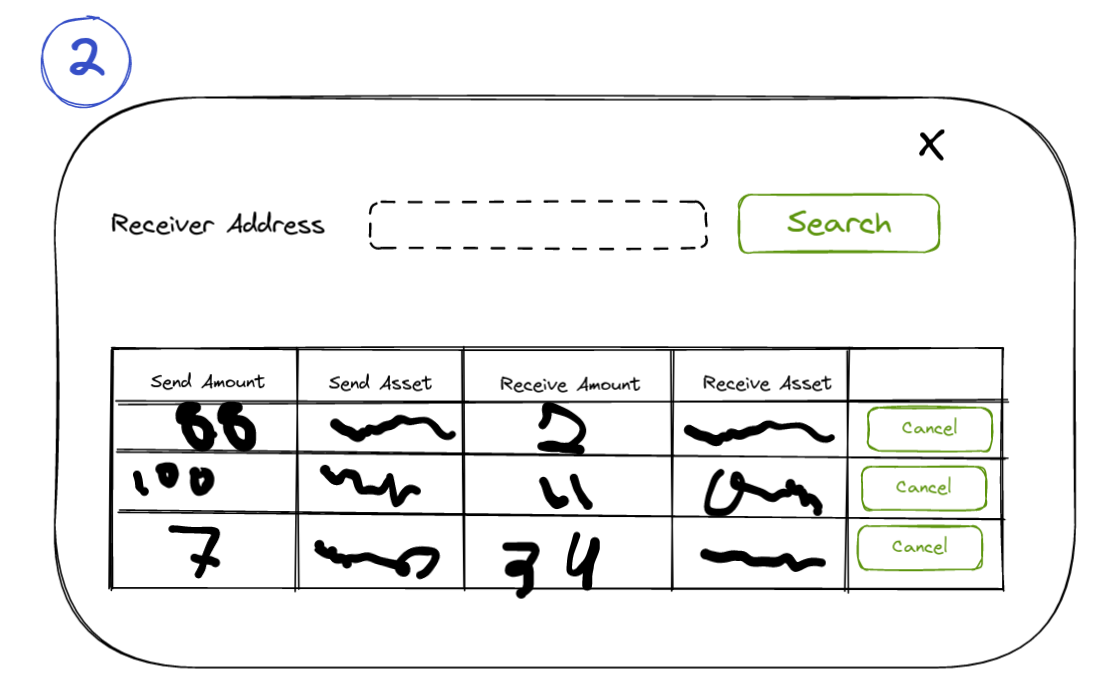 2
X
Receiver Address Search
Send Amount Send Asset Receive Amount Receive Asset
88 2 Cancel
100 11 Cancel
7 34 Cancel